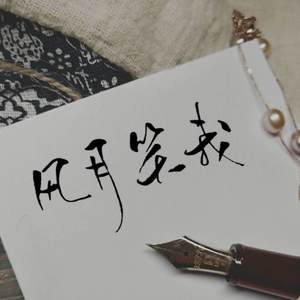 风月笑我